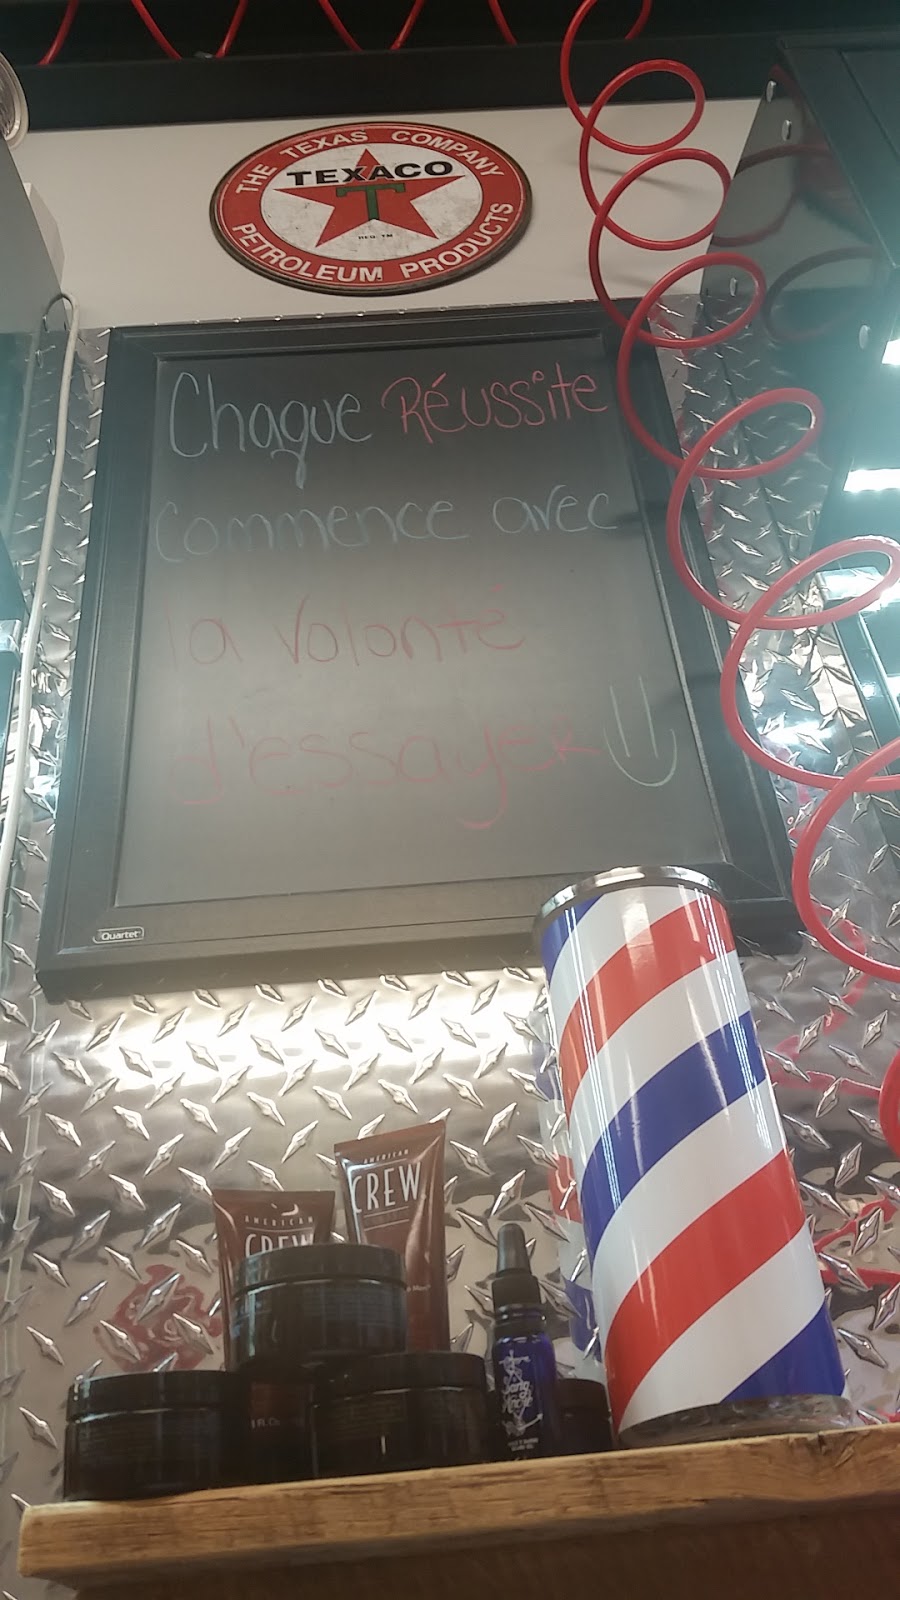 THE TEXAS COMPANY
TEXACO
T
REG. TM
PETROLEUM PRODUCTS
Chaque Réussite
commence avec
la volonté
d'essayer
Quartet
AMERICAN
CREW
AMERICAN
CREW